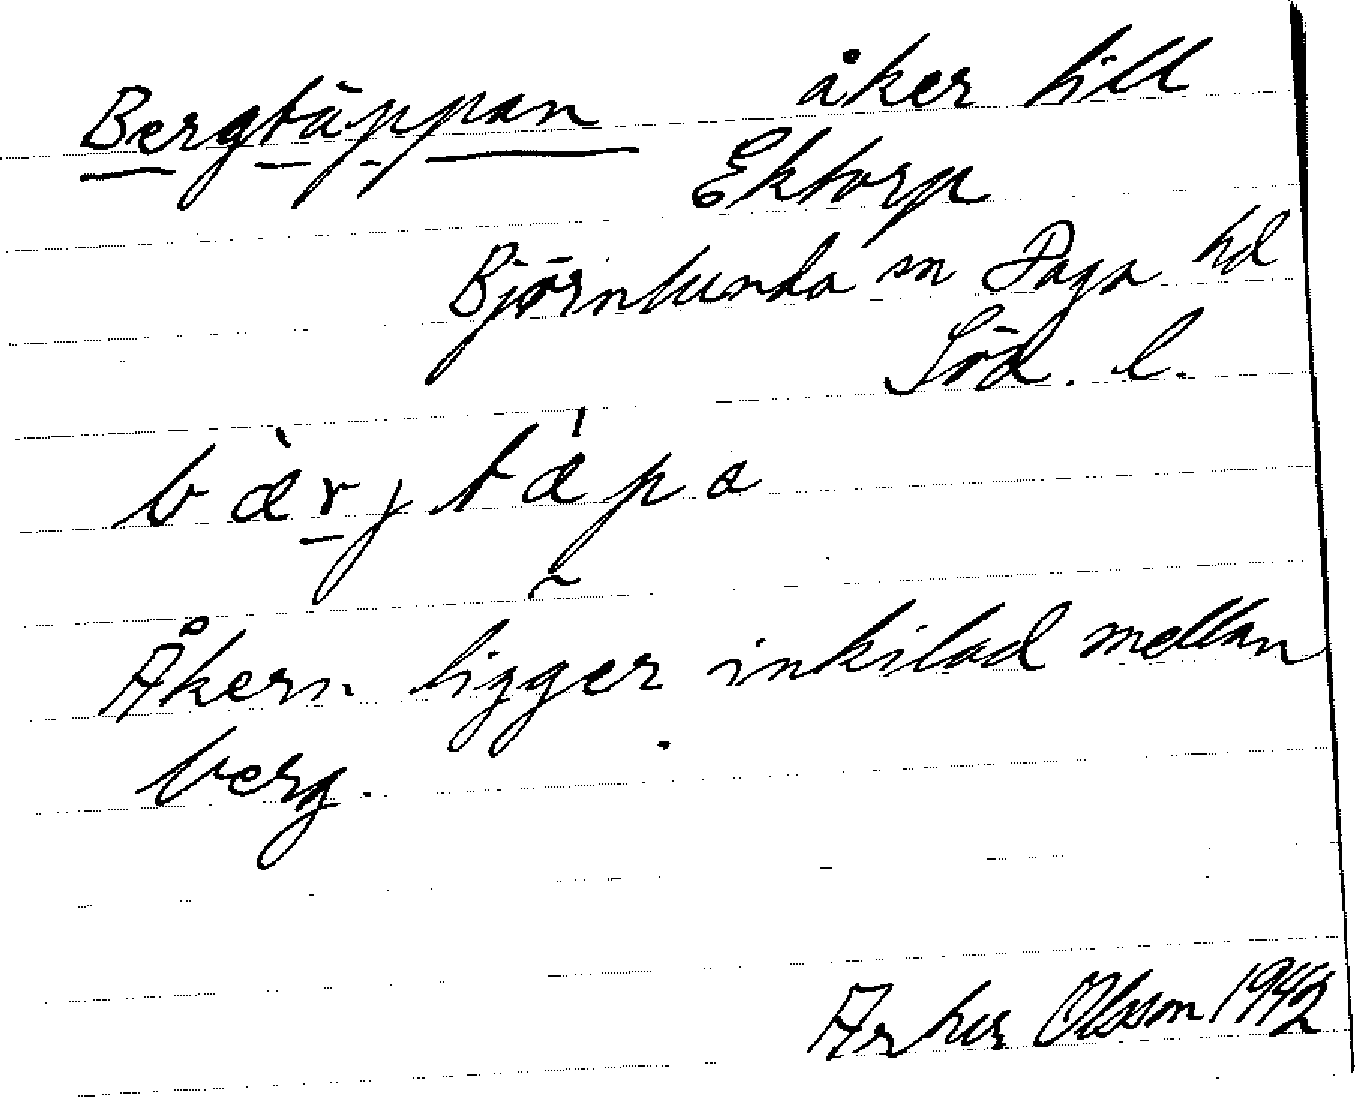 Bergtäppan åker till
Ektorp
Björnlunda sn Daga hd
Söd. l.
bær̠jtæpa
Åkern ligger inkilad mellan
berg.
Arthur Olsson 1942